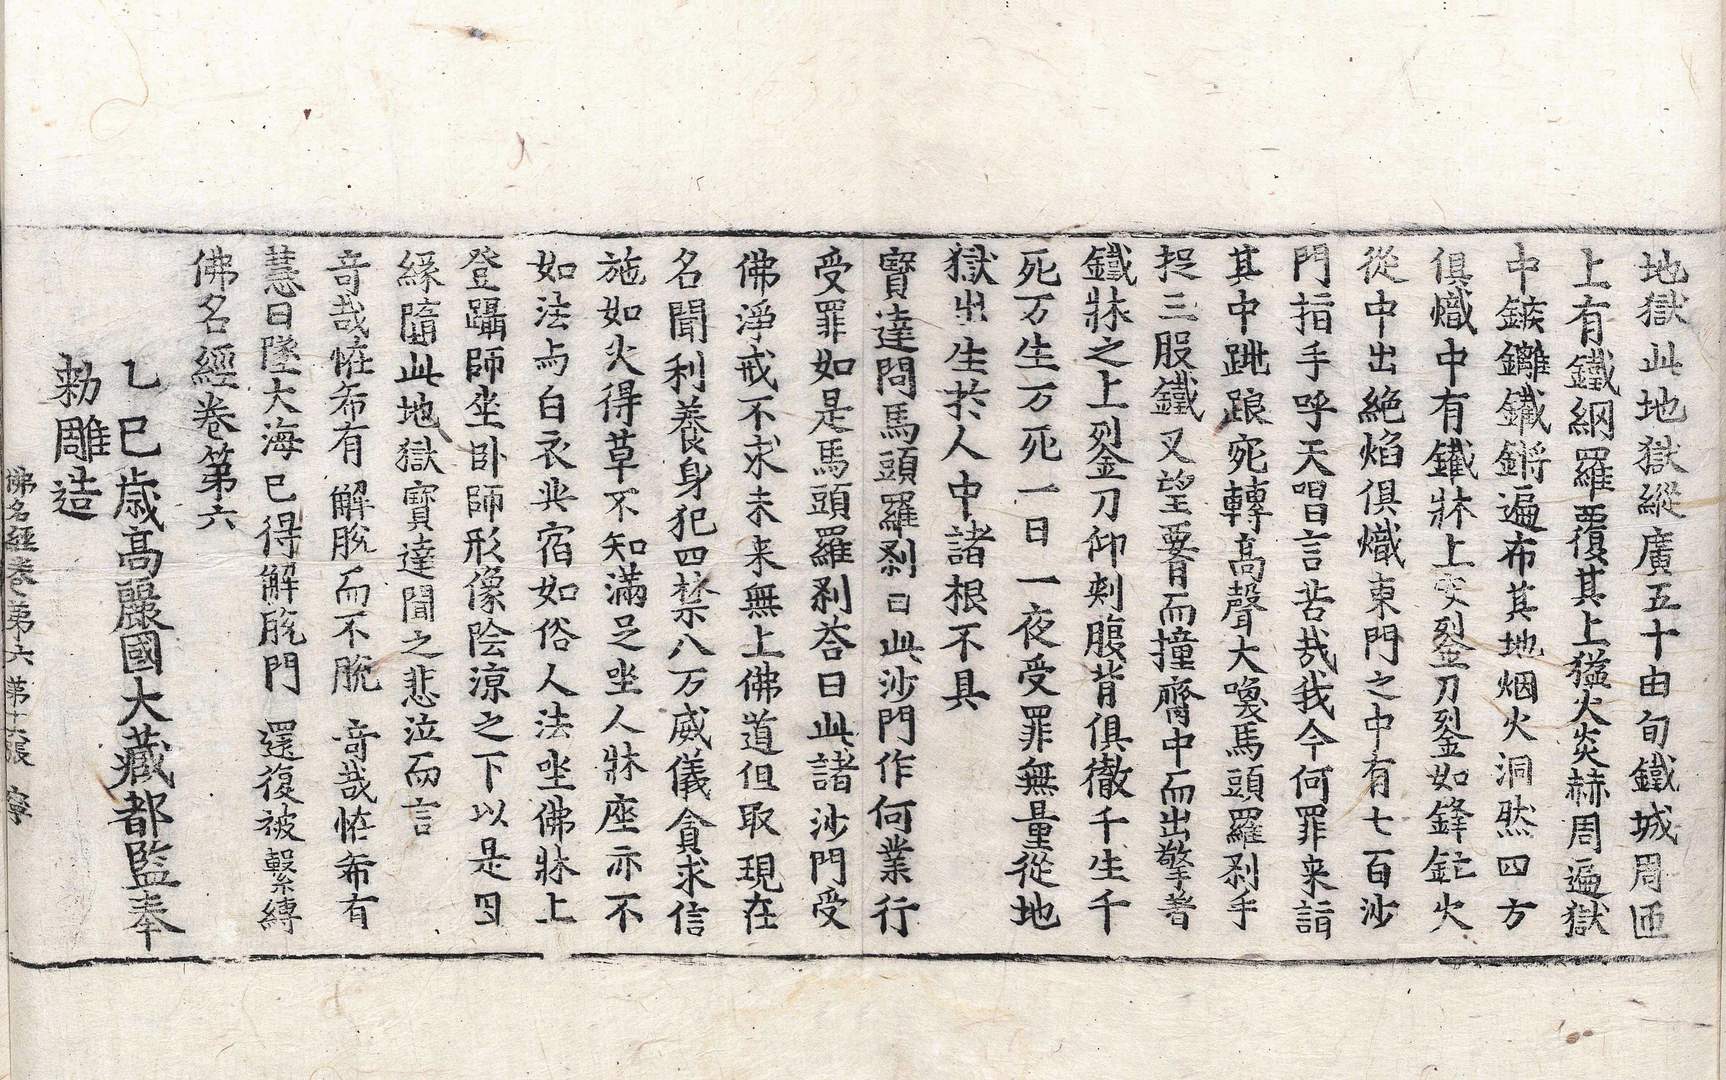 地獄此地獄縱廣五十由旬鐵城周匝
上有鐵網羅覆其上猛火炎赫周遍獄
中鏃鑼鐵鏘遍布其地烟火洞然四方
俱熾中有鐵牀上安刴金刀刴金如鋒鉈火
從中出絶焰俱熾東門之中有七百沙
門指手呼天唱言苦哉我今何罪来詣
其中跳踉宛轉高聲大喚馬頭羅刹手
捉三股鐵叉望䏶而撞齊中而出擎著
鐵牀之上刀仰刺腹背俱徹千生千
死万生万死一日一夜受罪無量從地
獄出生於人中諸根不具
寳達問馬頭羅刹曰此沙門作何業行
受罪如是馬頭羅刹荅曰此諸沙門受
佛淨戒不求未来無上佛道但取現在
名聞利養身犯四禁八万威儀貪求信
施如火得草不知滿足坐人牀座亦不
如法与白衣共宿如俗人法坐佛牀上
登躡師坐卧師形像陰涼之下以是因
緣墮此地獄寳達聞之悲泣而言
竒哉恠希有 解脫而不脫 竒哉恠希有
慧日墜大海 已得解脫門 還復被繫縛
佛名經卷第六
乙巳歳高麗國大藏都監奉
勅雕造
佛名經卷第六 第十六張 寧